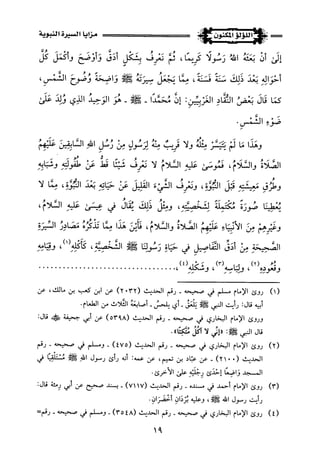 اللؤلؤ المكنون
مزايا السيرة النبوية
إِلَىٰ أَنْ بَعَثَهُ اللهُ رَسُولًا كَرِيمًا، ثُمَّ نَعْرِفُ بِشَكْلٍ أَدَقَّ وَأَوْضَحَ وَأَكْمَلَ كُلَّ
أَحْوَالِهِ بَعْدَ ذَلِكَ سَنَةً فَسَنَةً، مِمَّا يَجْعَلُ سِيرَتَهُ ﷺ وَاضِحَةً وُضُوحَ الشَّمْسِ،
كَمَا قَالَ بَعْضُ النُّقَّادِ الغَرْبِيِّينَ: إِنَّ مُحَمَّدًا - ﷺ - هُوَ الوَحِيدُ الذِي وُلِدَ عَلَىٰ
ضَوْءِ الشَّمْسِ.
وَهَذَا مَا لَمْ يَتَيَسَّرْ مِثْلُهُ وَلَا قَرِيبٌ مِنْهُ لِرَسُولٍ مِنْ رُسُلِ اللهِ السَّابِقِينَ عَلَيْهِمُ
الصَّلَاةُ والسَّلَامُ، فَمُوسَىٰ عَلَيْهِ السَّلَامُ لَا نَعْرِفُ شَيْئًا قَطُّ عَنْ طُفُولَتِهِ وشَبَابِهِ
وطُرُقِ مَعِيشَتِهِ قَبْلَ النُّبُوَّةِ، ونَعْرِفُ الشَّيْءَ القَلِيلَ عَنْ حَيَاتِهِ بَعْدَ النُّبُوَّةِ، مِمَّا لَا
يُعْطِينَا صُورَةً مُكْتَمِلَةً لِشَخْصِيَّتِهِ، ومِثْلُ ذَلِكَ يُقَالُ فِي عِيسَىٰ عليه السلام،
وغَيْرِهِمْ مِنَ الأَنْبِيَاءِ عَلَيْهِمُ الصلاةُ والسلام، فَأَيْنَ هَذَا مِمَّا تَذْكُرُهُ مَصَادِرُ السِّيرَةِ
الصَّحِيحَةِ مِنْ أدَقِّ التَّفَاصِيلِ في حَيَاةِ رَسُولِنَا ﷺ الشَّخْصِيَّةِ، كَأَكْلِهِ(١)، وقِيَامِهِ
وقُعُودِهِ(٢)، ولِبَاسِهِ(٣)، وشَكْلِهِ(٤)،
(١) روىٰ الإمام مسلم في صحيحه - رقم الحديث (٢٠٣٢) عن ابن كعب بن مالك، عن
أبيه قال: رأيت النبي ﷺ يَلْعَقُ - أي يلحسُ - أصابعَهُ الثَّلاثَ من الطعام.
وروىٰ الإمام البخاري في صحيحه - رقم الحديث (٥٣٩٨) عن أبي جحيفة ﷺ قال:
قال النبي ﷺ: «إنِّي لَا آكُلُ مُتَّكِئًا».
(٢) روىٰ الإمام البخاري في صحيحه - رقم الحديث (٤٧٥) - ومسلم في صحيحه - رقم
الحديث (٢١٠٠) - عن عبّاد بن تميم، عن عمه: أنه رأىٰ رسول الله ﷺ مُسْتَلْقِيًا في
المسجد وَاضِعًا إحْدَىٰ رِجْلَيْهِ علىٰ الأخرىٰ.
(٣) روىٰ الإمام أحمد في مسنده - رقم الحديث (٧١١٧) - بسند صحيح عن أبي رِمثة قال:
رأيت رسول الله ﷺ، وعليه بُرْدَانِ أخْضَرَانِ.
(٤) روىٰ الإمام البخاري في صحيحه - رقم الحديث (٣٥٤٨) - ومسلم في صحيحه - رقم=
١٩